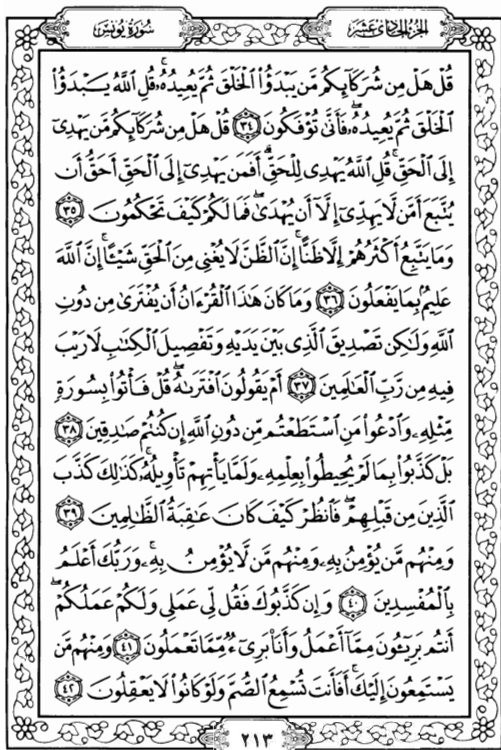 الجزء الحادى عشر
سورة يونس
قُلْ هَلْ مِن شُرَكَآئِكُم مَّن يَبْدَؤُا۟ ٱلْخَلْقَ ثُمَّ يُعِيدُهُۥ ۚ قُلِ ٱللَّهُ يَبْدَؤُا۟
ٱلْخَلْقَ ثُمَّ يُعِيدُهُۥ ۖ فَأَنَّىٰ تُؤْفَكُونَ ﴿٣٤﴾ قُلْ هَلْ مِن شُرَكَآئِكُم مَّن يَهْدِىٓ
إِلَى ٱلْحَقِّ ۚ قُلِ ٱللَّهُ يَهْدِى لِلْحَقِّ ۗ أَفَمَن يَهْدِىٓ إِلَى ٱلْحَقِّ أَحَقُّ أَن
يُتَّبَعَ أَمَّن لَّا يَهِدِّىٓ إِلَّآ أَن يُهْدَىٰ ۖ فَمَا لَكُمْ كَيْفَ تَحْكُمُونَ ﴿٣٥﴾
وَمَا يَتَّبِعُ أَكْثَرُهُمْ إِلَّا ظَنًّا ۚ إِنَّ ٱلظَّنَّ لَا يُغْنِى مِنَ ٱلْحَقِّ شَيْـًٔا ۚ إِنَّ ٱللَّهَ
عَلِيمٌۢ بِمَا يَفْعَلُونَ ﴿٣٦﴾ وَمَا كَانَ هَـٰذَا ٱلْقُرْءَانُ أَن يُفْتَرَىٰ مِن دُونِ
ٱللَّهِ وَلَـٰكِن تَصْدِيقَ ٱلَّذِى بَيْنَ يَدَيْهِ وَتَفْصِيلَ ٱلْكِتَـٰبِ لَا رَيْبَ
فِيهِ مِن رَّبِّ ٱلْعَـٰلَمِينَ ﴿٣٧﴾ أَمْ يَقُولُونَ ٱفْتَرَىٰهُ ۖ قُلْ فَأْتُوا۟ بِسُورَةٍ
مِّثْلِهِۦ وَٱدْعُوا۟ مَنِ ٱسْتَطَعْتُم مِّن دُونِ ٱللَّهِ إِن كُنتُمْ صَـٰدِقِينَ ﴿٣٨﴾
بَلْ كَذَّبُوا۟ بِمَا لَمْ يُحِيطُوا۟ بِعِلْمِهِۦ وَلَمَّا يَأْتِهِمْ تَأْوِيلُهُۥ ۚ كَذَٰلِكَ كَذَّبَ
ٱلَّذِينَ مِن قَبْلِهِمْ ۖ فَٱنظُرْ كَيْفَ كَانَ عَـٰقِبَةُ ٱلظَّـٰلِمِينَ ﴿٣٩﴾
وَمِنْهُم مَّن يُؤْمِنُ بِهِۦ وَمِنْهُم مَّن لَّا يُؤْمِنُ بِهِۦ ۚ وَرَبُّكَ أَعْلَمُ
بِٱلْمُفْسِدِينَ ﴿٤٠﴾ وَإِن كَذَّبُوكَ فَقُل لِّى عَمَلِى وَلَكُمْ عَمَلُكُمْ ۖ
أَنتُم بَرِيٓـُٔونَ مِمَّآ أَعْمَلُ وَأَنَا۠ بَرِىٓءٌ مِّمَّا تَعْمَلُونَ ﴿٤١﴾ وَمِنْهُم مَّن
يَسْتَمِعُونَ إِلَيْكَ ۚ أَفَأَنتَ تُسْمِعُ ٱلصُّمَّ وَلَوْ كَانُوا۟ لَا يَعْقِلُونَ ﴿٤٢﴾
٢١٣